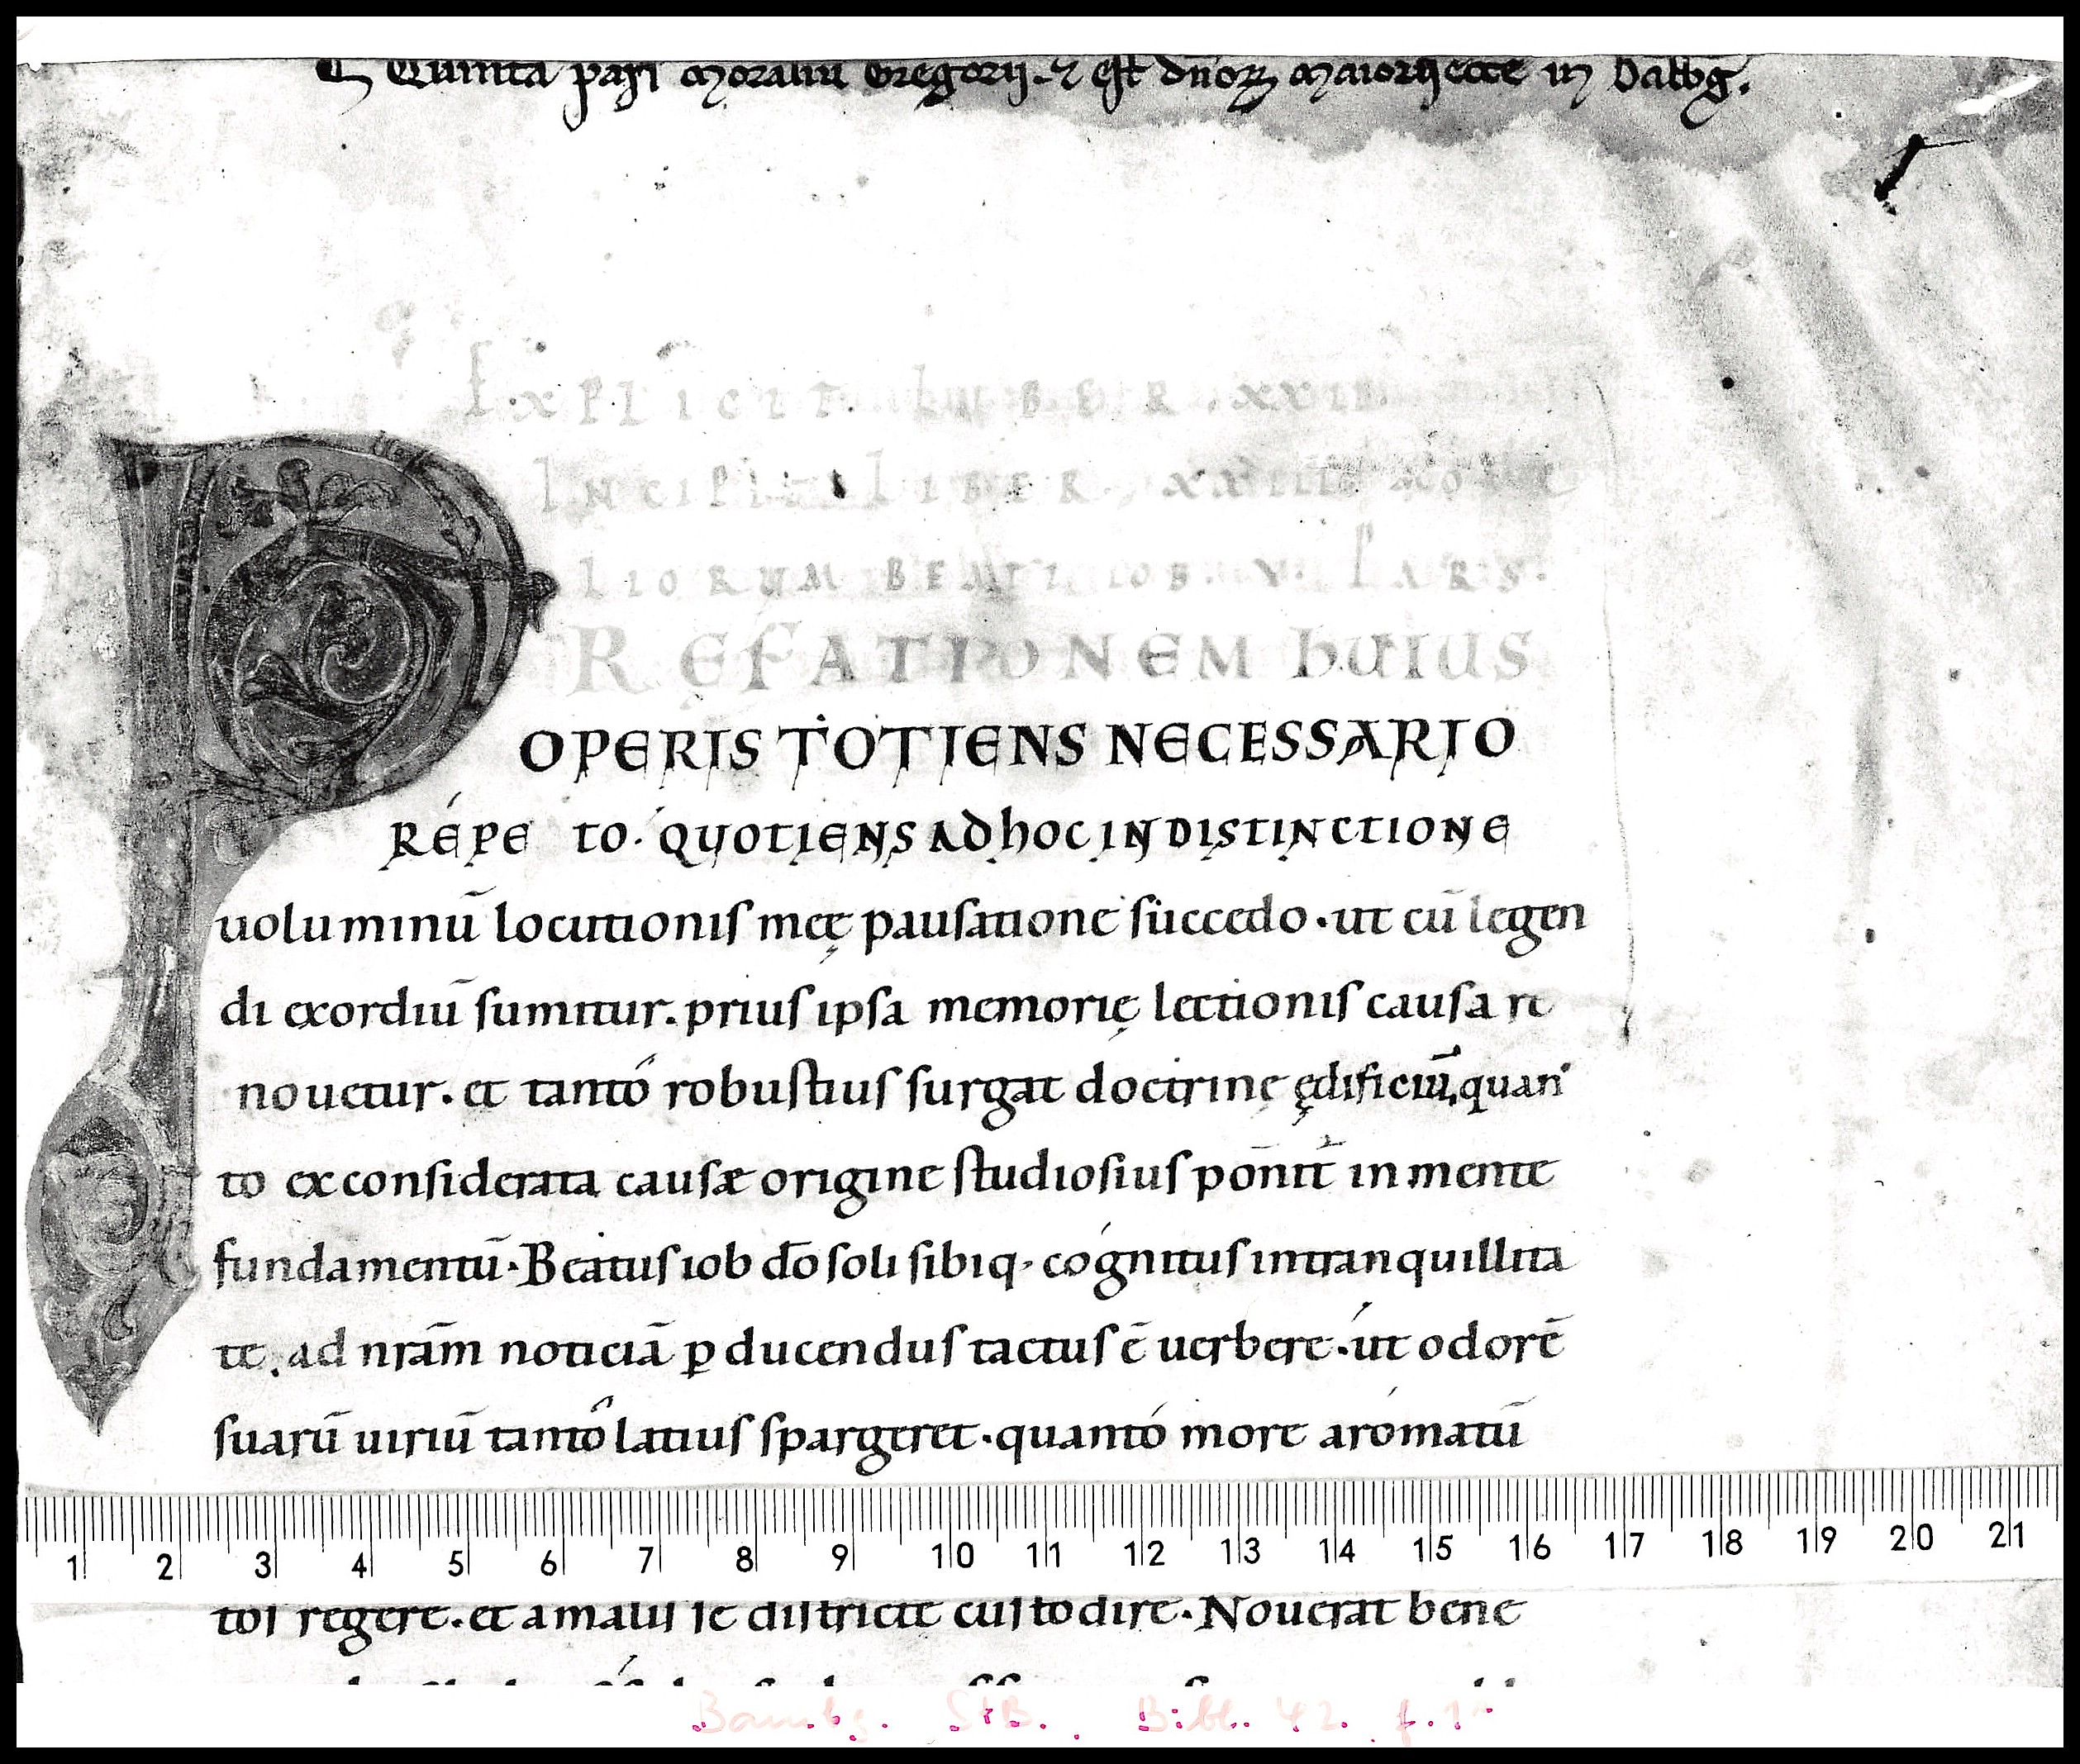 Quinta pars Moraliū Gregorij. ⁊ est dn̄oꝝ Maioris eccē in Babbg̃.
EXPLICIT LIBER .XXII
INCIPIT LIBER .XXIII MORA
LIORUM BEATI IOB. V. PARS.
REFATIONEM HUIUS
OPERIS TOTIENS NECESSARIO
RÉPETO. QUOTIENS AD HOC IN DISTINCTIONE
uoluminū locutionis meę pausatione succedo. ut cū legen
di exordiū sumitur. prius ipsa memorię lectionis causa re
nouetur. et tantô robustius surgat doctrinę ędificiū, quan
to ex considerata causæ origine studiosius pōnit̄ in mente
fundamentū. Beatus iob dō soli sibiq; cógnitus in tranquillita
te, ad nrām noticiā ꝑducendus tactus ē uerbere. út odorē
suarū uiriū tantô latius spargeret. quantó more arómatū
1 2 3 4 5 6 7 8 9 10 11 12 13 14 15 16 17 18 19 20 21
tos regere. et a malis se districte custodire. Nouerat bene
Bambg. StB. Bibl. 42. f. 1r